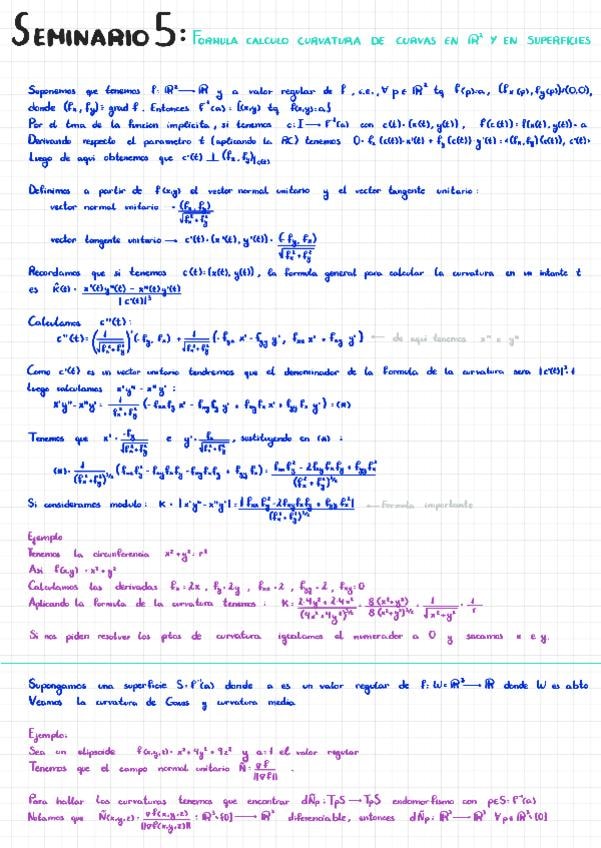 SEMINARIO 5: FORMULA CALCULO CURVATURA DE CURVAS EN ℝ² Y EN SUPERFICIES
Suponemos que tenemos f: ℝ² → ℝ y a valor regular de f, i.e., ∀ p ∈ ℝ² tq f(p)=a, (fx(p), fy(p))≠(0,0),
donde (fx, fy) = grad f. Entonces f⁻¹(a) = {(x,y) tq f(x,y)=a}
Por el tma de la funcion implicita, si tenemos c: I → f⁻¹(a) con c(t) = (x(t), y(t)), f(c(t)) = f(x(t), y(t)) = a
Derivando respecto el parametro t (aplicando la RC) tenemos 0 = fx(c(t))·x'(t) + fy(c(t))·y'(t) = <(fx, fy)(c(t)), c'(t)>
Luego de aqui obtenemos que c'(t) ⊥ (fx, fy)|c(t)
Definimos a partir de f(x,y) el vector normal unitario y el vector tangente unitario:
vector normal unitario = (fx, fy) / √(fx² + fy²)
vector tangente unitario → c'(t) = (x'(t), y'(t)) = (-fy, fx) / √(fx² + fy²)
Recordamos que si tenemos c(t) = (x(t), y(t)), la formula general para calcular la curvatura en un intante t
es k̂(t) = (x'(t)y''(t) - x''(t)y'(t)) / |c'(t)|³
Calculamos c''(t):
c''(t) = (1/√(fx² + fy²))' (-fy, fx) + 1/√(fx² + fy²) (-fyx x' - fyy y', fxx x' + fxy y') ← de aqui tenemos x'' e y''
Como c'(t) es un vector unitario tendremos que el denominador de la formula de la curvatura sera |c'(t)|³ = 1
Luego calculamos x'y'' - x''y':
x'y'' - x''y' = 1/(fx² + fy²) (-fxx fy x' - fxy fy y' + fxy fx x' + fyy fx y') = (*)
Tenemos que x' = -fy/√(fx² + fy²) e y' = fx/√(fx² + fy²), sustituyendo en (*):
(*) = 1/(fx² + fy²)^3/2 (fxx fy² - fxy fx fy - fxy fx fy + fyy fx²) = (fxx fy² - 2fxy fx fy + fyy fx²)/(fx² + fy²)^3/2
Si consideramos modulo: K = |x'y'' - x''y'| = |fxx fy² - 2fxy fx fy + fyy fx²|/(fx² + fy²)^3/2 ← Formula importante
Ejemplo
Tenemos la circunferencia x² + y² = r²
Asi f(x,y) = x² + y²
Calculamos las derivadas fx = 2x, fy = 2y, fxx = 2, fyy = 2, fxy = 0
Aplicando la formula de la curvatura tenemos: K = (2·4y² + 2·4x²)/(4x² + 4y²)^3/2 = 8(x² + y²)/8(x² + y²)^3/2 = 1/√(x² + y²) = 1/r
Si nos piden resolver los ptos de curvatura igualamos el numerador a 0 y sacamos x e y.
Supongamos una superficie S = f⁻¹(a) donde a es un valor regular de f: W ⊂ ℝ³ → ℝ donde W es abto
Veamos la curvatura de Gauss y curvatura media
Ejemplo:
Sea un elipsoide f(x,y,z) = x² + 4y² + 9z² y a = 1 el valor regular
Tenemos que el campo normal unitario Ñ = ∇f/||∇f|| .
Para hallar las curvaturas tenemos que encontrar dÑp: TpS → TpS endomorfismo con p∈S = f⁻¹(a)
Notamos que Ñ(x,y,z) = ∇f(x,y,z)/||∇f(x,y,z)|| : ℝ³\{0} → ℝ³ diferenciable, entonces dÑp: ℝ³ → ℝ³ ∀ p∈ℝ³\{0}